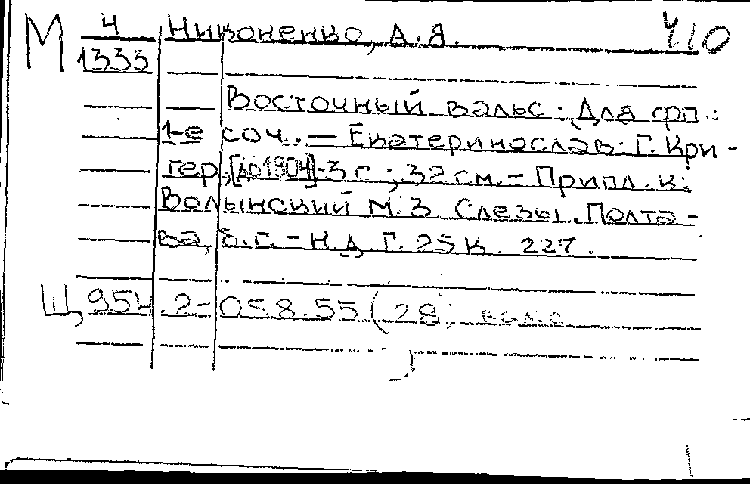 М 4 Никоненко, А. Я. 410
1335
Восточный вальс: Для фп.:
1-е соч. — Екатеринослав: Г. Кри-
гер, [до 1904]. - 3 с.; 32 см. - Припл. к:
Волынский М. З. Слезы. Полта-
ва, б. г. - Н. д. Г. 25 к. 227.
Щ954.2-058.55(28,